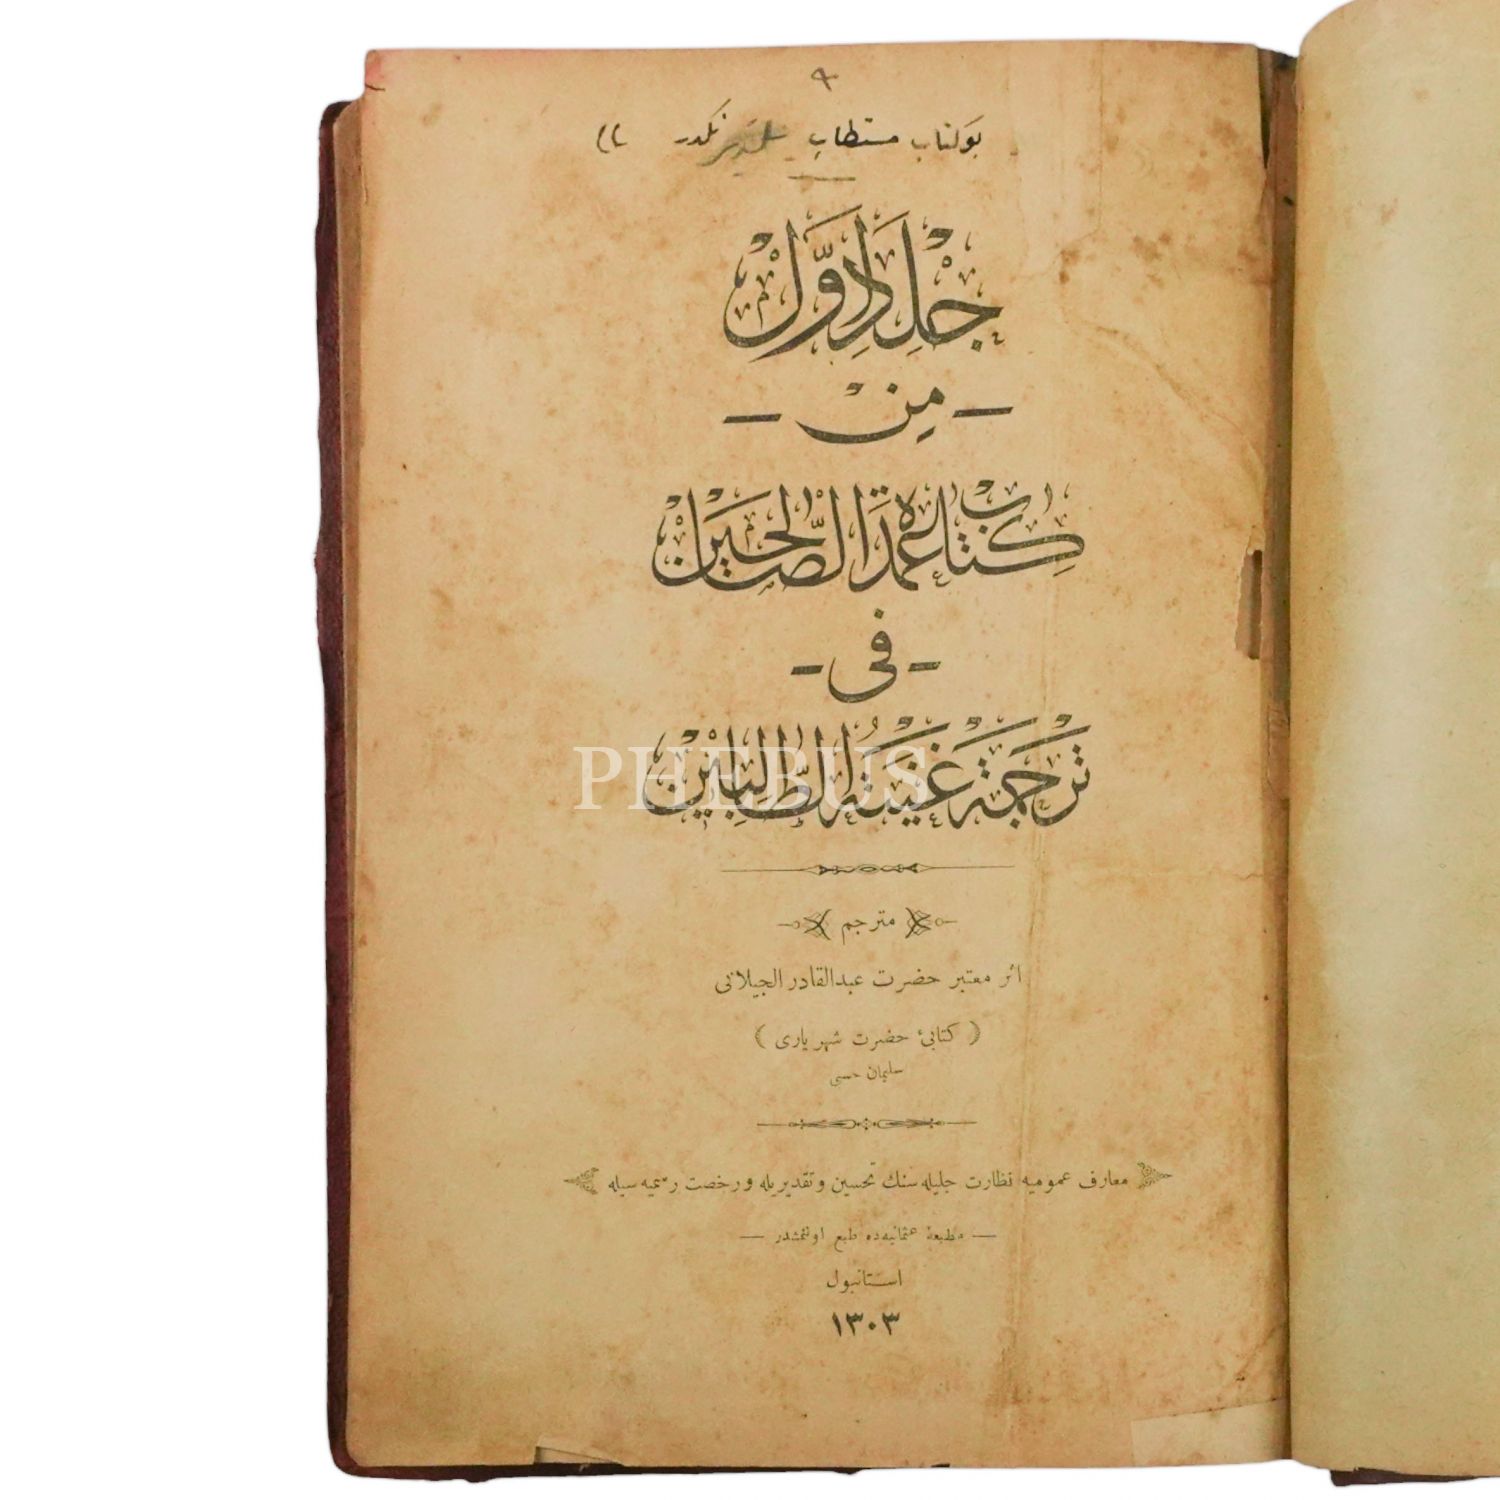 ٩
بو کتاب مستطاب نكدر
جلد اوّل
- مِنْ -
كِتَابُ عُمْدَةِ الصَّالِحِينَ
- فى -
تَرْجَمَة غُنْيَةِ الطَّالِبِينَ
PHEBUS
مترجم
اثر معتبر حضرت عبدالقادر الجيلانى
( كتابئ حضرت شهريارى )
سليمان حسبى
معارف عموميه نظارت جليله سنك تحسين وتقديريله ورخصت رسميه سيله
— مطبعۀ عثمانيه ده طبع اولنمشدر —
استانبول
١٣٠٣